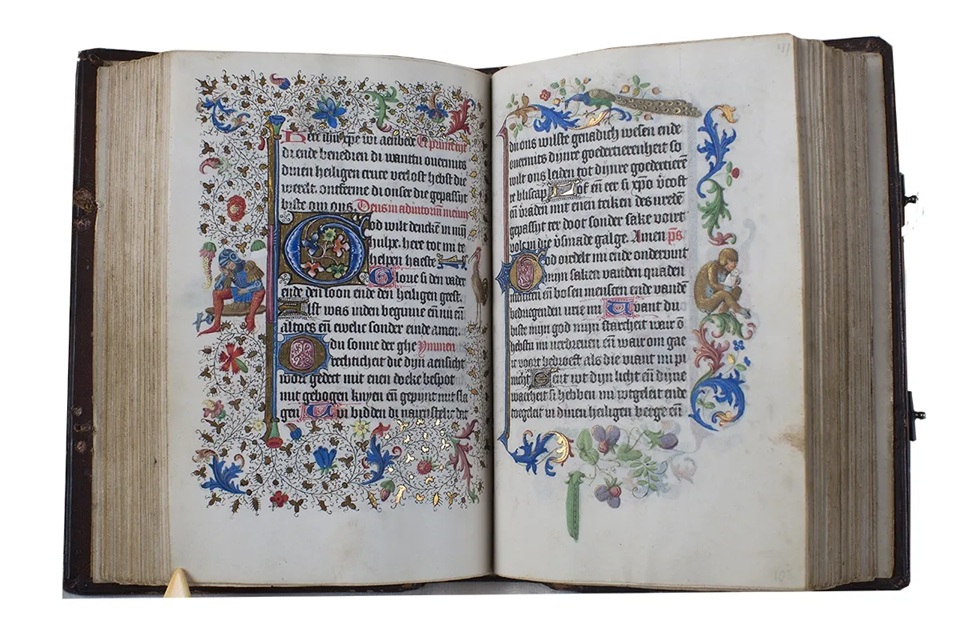 Here ihū xpe wi aenbede
di ende benedien di want du ouermits
dinen heiligen cruce verlost hebst die
werlt. ontferme di onser die gepassijt
biste om ons. Deus in adiutoriū meum
God wilt dencke in mij
hulpe. here tot mi te
helpen haeste.
Glorie si den vader
ende den soon ende den heiligen geest.
Alst was inden beginne eñ nu eñ
altoes eñ ewelic sonder einde amen.
du sonne der ghe Ymnen
rechticheit die dijn aensicht
wort gedect mit enen docke bespot
mit gebogen knyen eñ gepijnt mit sla
gen Wi bidden di
du ons wilste genadich wesen ende
ouermits dijnre goedertierenheit so
wilt ons leiden tot dijnre goedertierē
Lof eñ eer si xpo
eñ mit enen teiken des
gepassijt ter doot sonder sake voirt
galge. Amen ps
God ordelt mi ende ondersunt
mijn saken vanden quaden
eñ bosen menscen ende vandē
bedriegenden Want du
biste mijn god mijn starcheit wair ō
hebstu mi verdreuen eñ wair om gae
ic als die viant mi pi
nicht Sent wt dijn licht eñ dijne
waerheit si hebben mi wtgeleit ende
toegeleit in dinen heiligen berge eñ